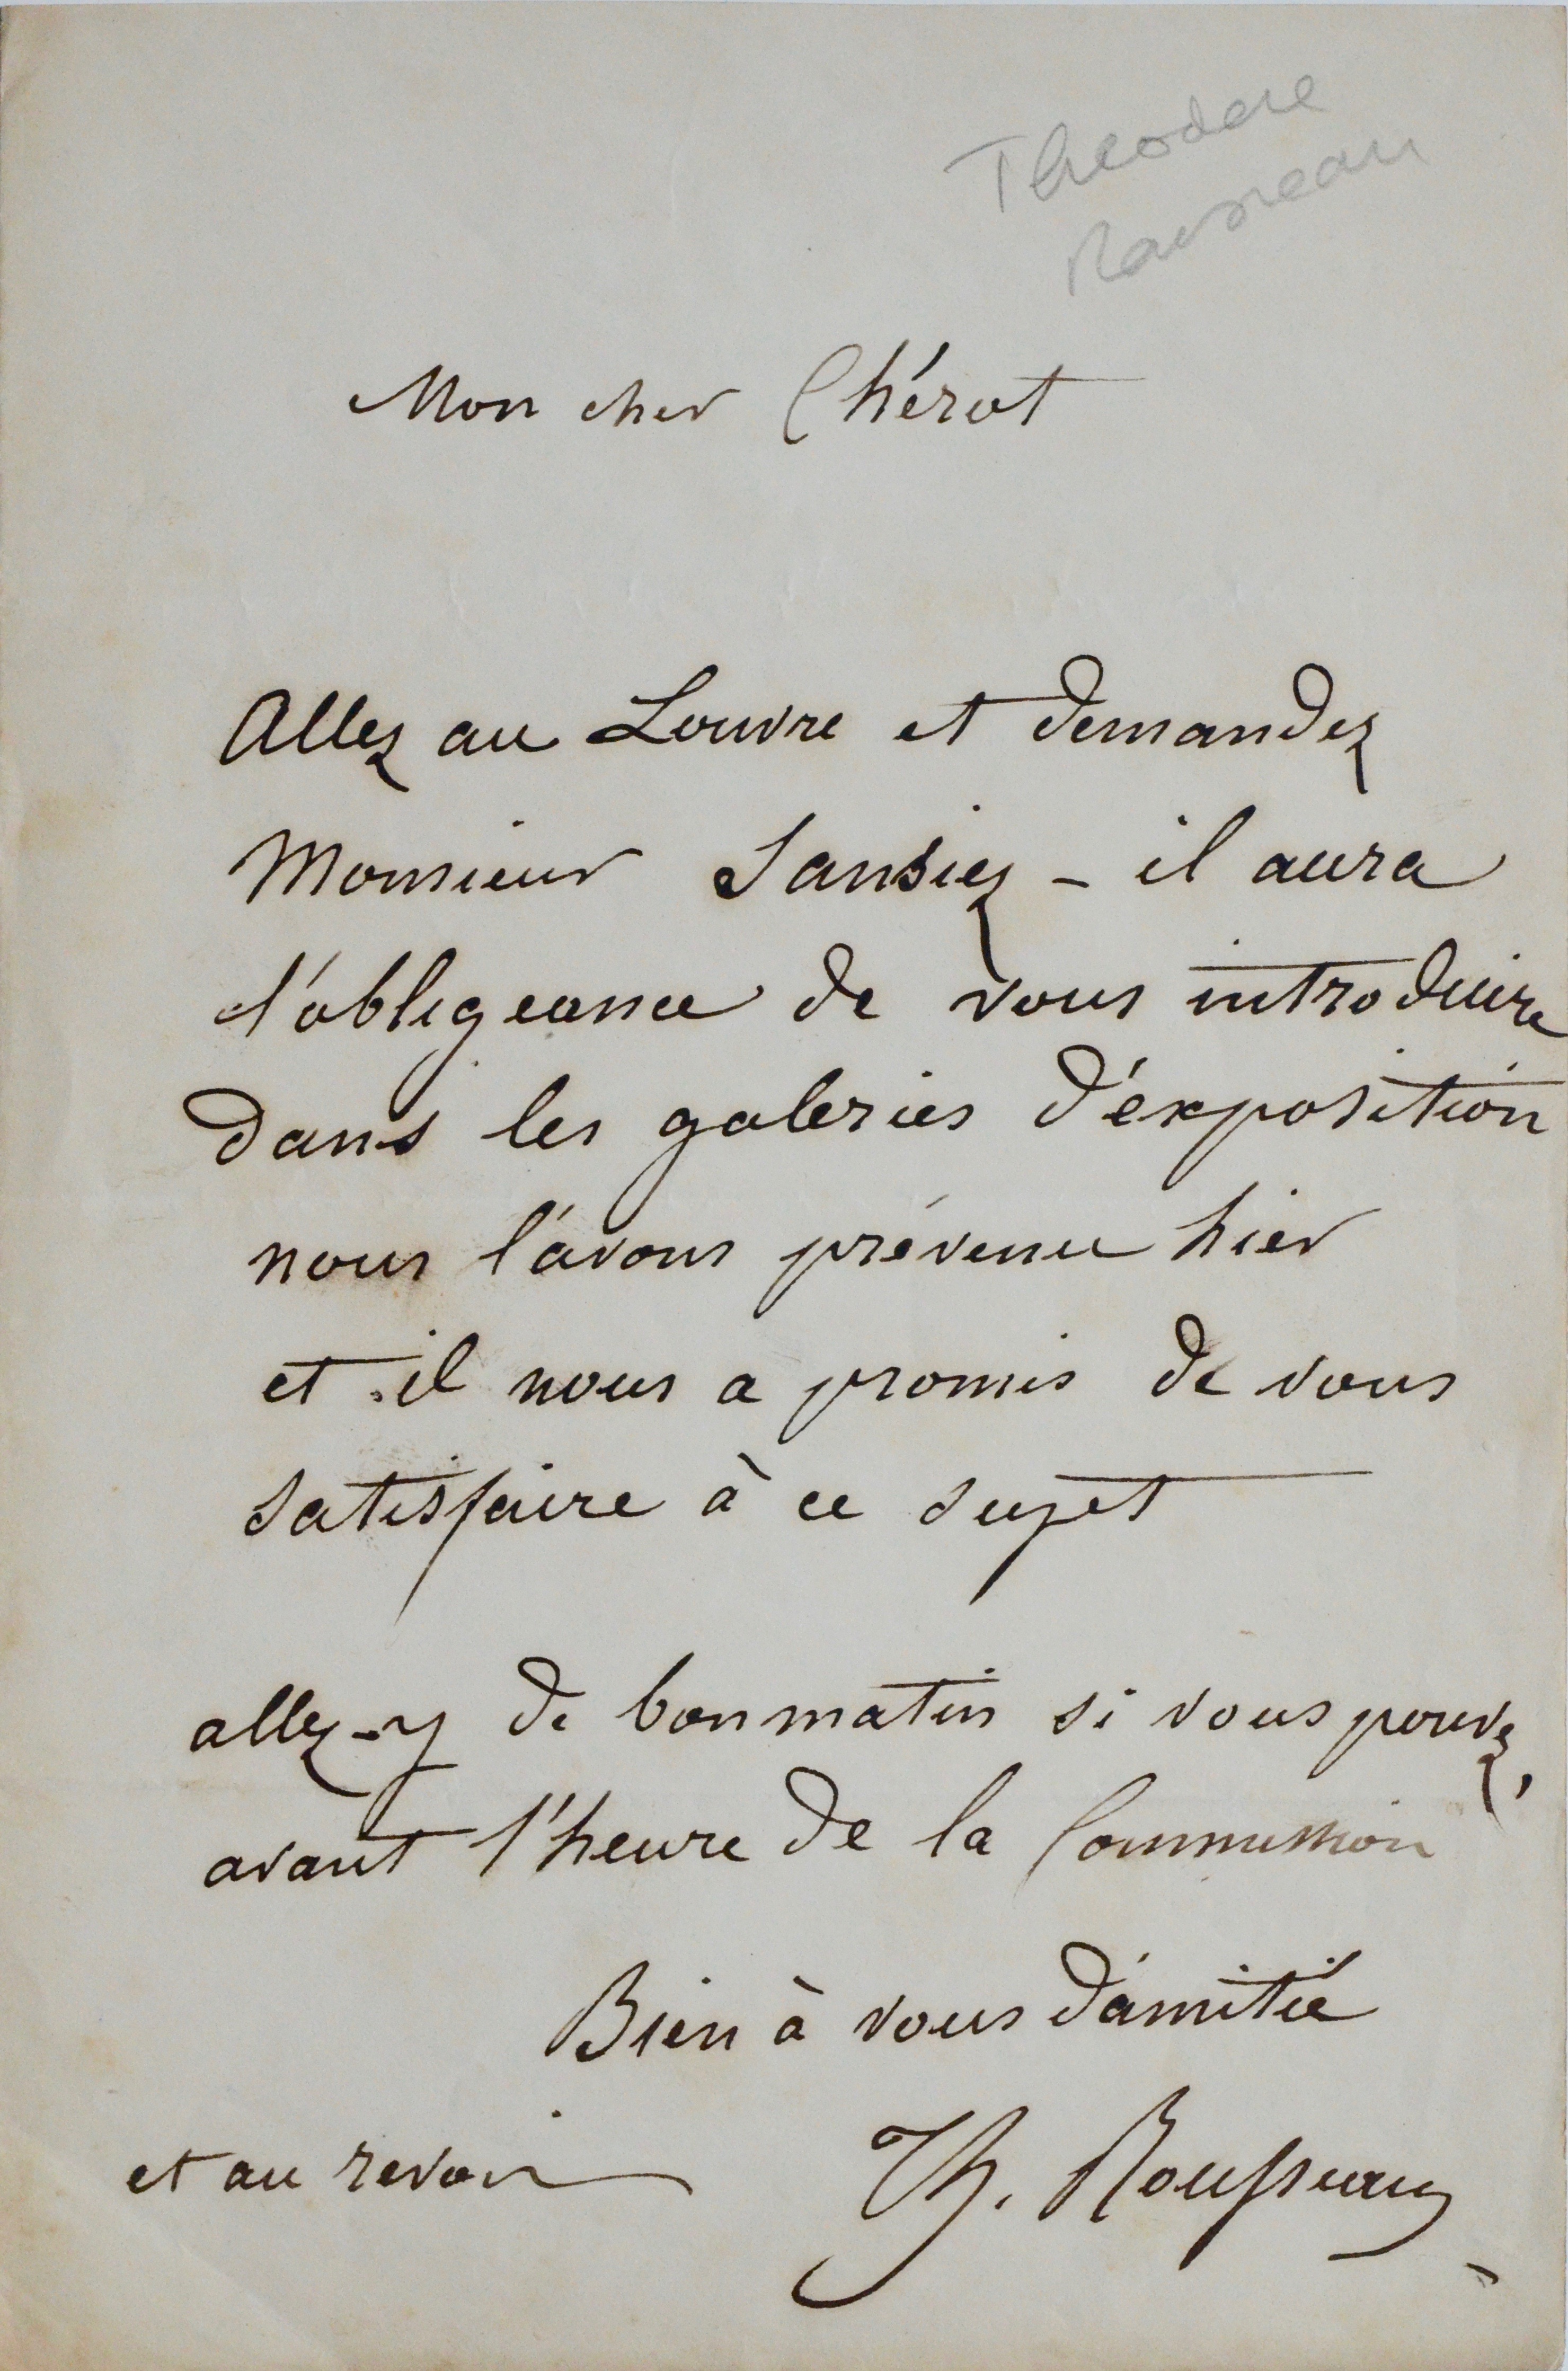 Theodore
Rousseau
Mon cher Chérot
Allez au Louvre et demandez
Monsieur Sansiez – il aura
l'obligeance de vous introduire
dans les galeries d'exposition
nous l'avons prévenu hier
et il nous a promis de vous
satisfaire à ce sujet
allez-y de bon matin si vous pouvez,
avant l'heure de la Commission
Bien à vous d'amitié
et au revoir Th. Rousseau